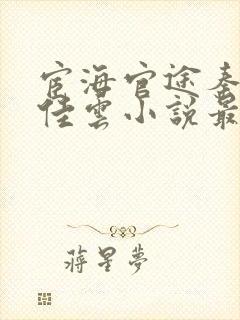 宦海官途秦
佳雲小說最
蔣星夢